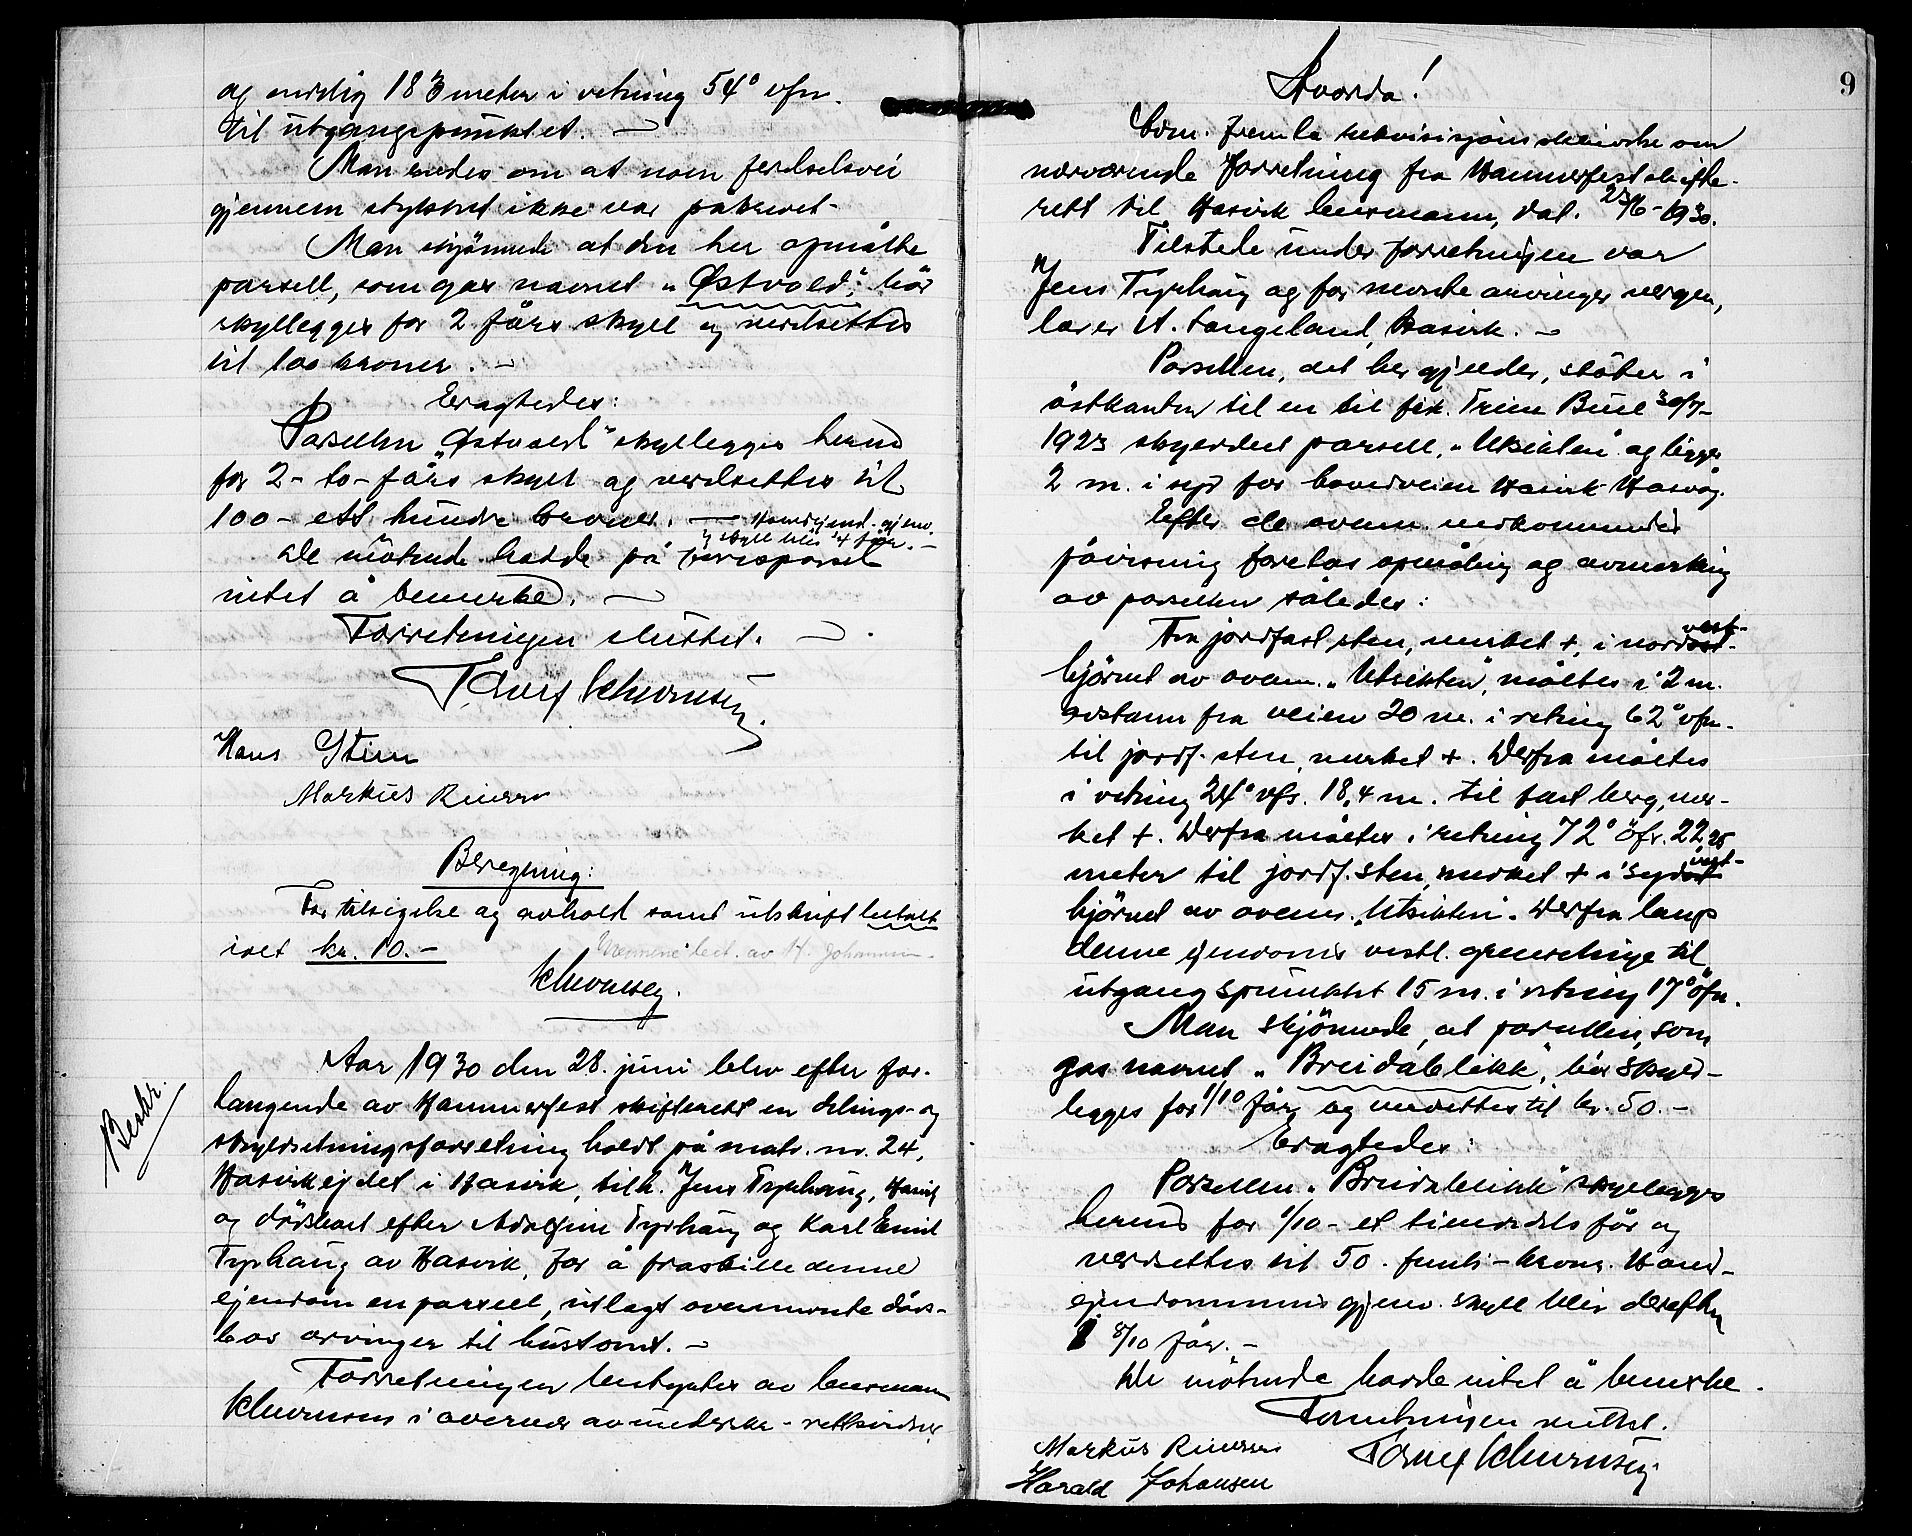 og endelig 183 meter i retning 54° vfn.
til utgangspunktet. —
Man enedes om at noen ferdselsvei
gjennem stykket ikke var påkrevet.
Man skjønnede at den her opmålte
parsell, som gax navnet „Østvold", bör
skyllegges for 2 fårs skyll og verdsettes
til 100 kroner. —
Eragtedes:
Parsellen „Østvold" skyllegges herved
for 2 - to - fårs skyll og verdsettes til
100 - ett hundre kroner. — Hovedeiend. gjenv.
skyll blir 4 får. —
De mötende hadde på
intet å bemerke. —
Forretningen sluttet. —
Hans Stien
Markus
Beregning:
For tilsigelse og avhold samt utskrift betalt
ialt kr. 10.-
bet. av H. Johannsen.
Beskr.
Aar 1930 den 28. juni blev efter for-
langende av Hammerfest skifterett en delings- og
skyldsetningsforretning holdt på matr. nr. 24,
Hasvikeidet i Hasvik, tilh. Jens Tyrhaug, Hasvik
og dödsboet efter Tyrhaug og Karl Emil
Tyrhaug av Hasvik, for å fraskille denne
ejendom en parsell, utlagt ovennevnte döds-
bos arvinger til hustomt. —
Forretningen bestyrtes av lensmann
i overvær av underskr. rettsvidner
9
Som fremla rekvisisjonsskrivelse om
nærværende forretning fra Hammerfest skifte-
rett til Hasvik lensmann, dat. 23/6-1930.
Tilstede under forretningen var
Jens Tyrhaug og for nevnte arvinger vergen,
lærer A. Langeland, Hasvik. —
Parsellen, det her gjelder, stöter i
östkanten til en til frk. Trine Buul 30/7-
1923 skylddelt parsell, „Utsikten" og ligger
2 m. i syd for hovedveien Hasvik-Hasvåg.
Efter de ovenn. vedkommendes
påvisning foretas opmåling og avmerking
av parsellen således:
Fra jordfast sten, merket +, i nordvest-
hjörnet av ovenn. „Utsikten", måltes i 2 m.
avstann fra veien 20 m. i retning 62° vfn.
til jordf. sten, merket +. Derfra måltes
i retning 24° vfs. 18,4 m. til fast berg, mer-
ket +. Derfra måltes i retning 72° öfs. 22,25
meter til jordf. sten, merket + i sydvest-
hjörnet av ovenn. „Utsikten". Derfra langs
denne ejendoms vestl. grenselinje til
utgangspunktet 15 m. i retning 17° öfn.
Man skjönnede, at parsellen, som
gas navnet „Breidablikk", bör skyld-
legges for 1/10 får og verdsettes til kr. 50.-
Eragtedes:
Parsellen „Breidablikk" skyllegges
herved for 1/10 - et tiendedels får og
verdsettes til 50 - femti - kroner. Hoved-
ejendommens gjenv. skyll blir derefter
8/10 får. —
De mötende hadde intet å bemerke.
Forretningen sluttet.
Markus
Harald Johansen